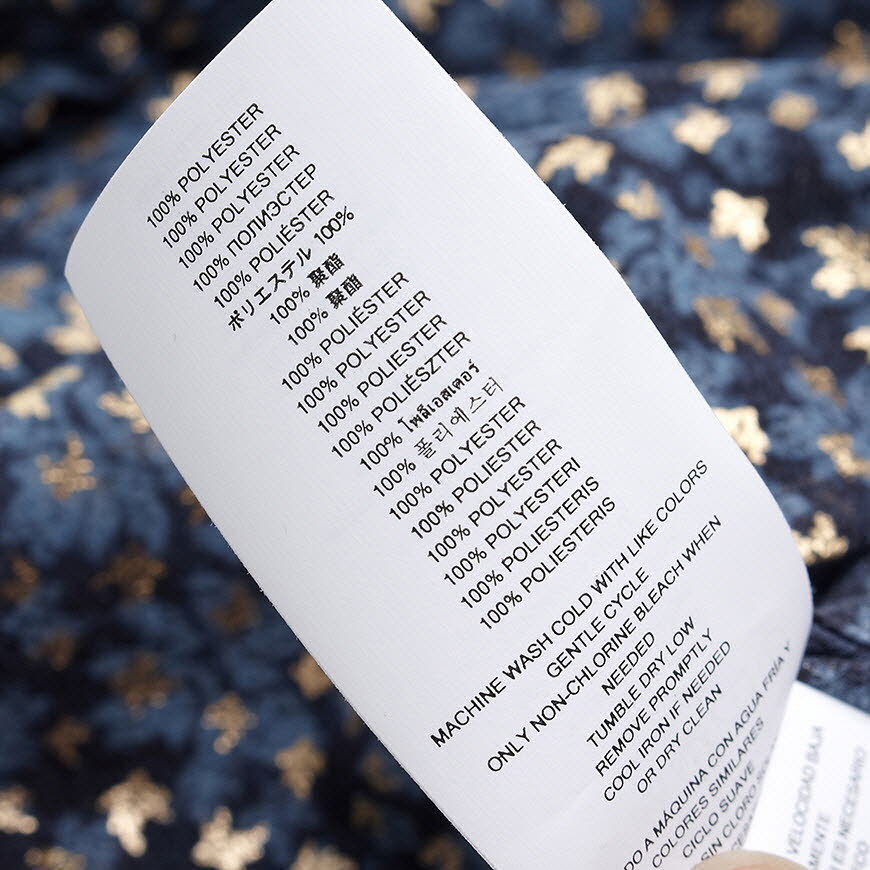 100% POLYESTER
100% POLYESTER
100% POLYESTER
100% ПОЛИЭСТЕР
100% POLIÉSTER
ポリエステル 100%
100% 聚酯
100% 聚酯
100% POLIÉSTER
100% POLYESTER
100% POLIESTER
100% POLIÉSZTER
100% โพลีเอสเตอร์
100% 폴리에스터
100% POLYESTER
100% POLIESTER
100% POLYESTER
100% POLYESTERI
100% POLIESTERIS
100% POLIESTERIS
MACHINE WASH COLD WITH LIKE COLORS
GENTLE CYCLE
ONLY NON-CHLORINE BLEACH WHEN
NEEDED
TUMBLE DRY LOW
REMOVE PROMPTLY
COOL IRON IF NEEDED
OR DRY CLEAN
A MÁQUINA CON AGUA FRÍA Y
COLORES SIMILARES
CICLO SUAVE
SIN CLORO
VELOCIDAD BAJA
ES NECESARIO